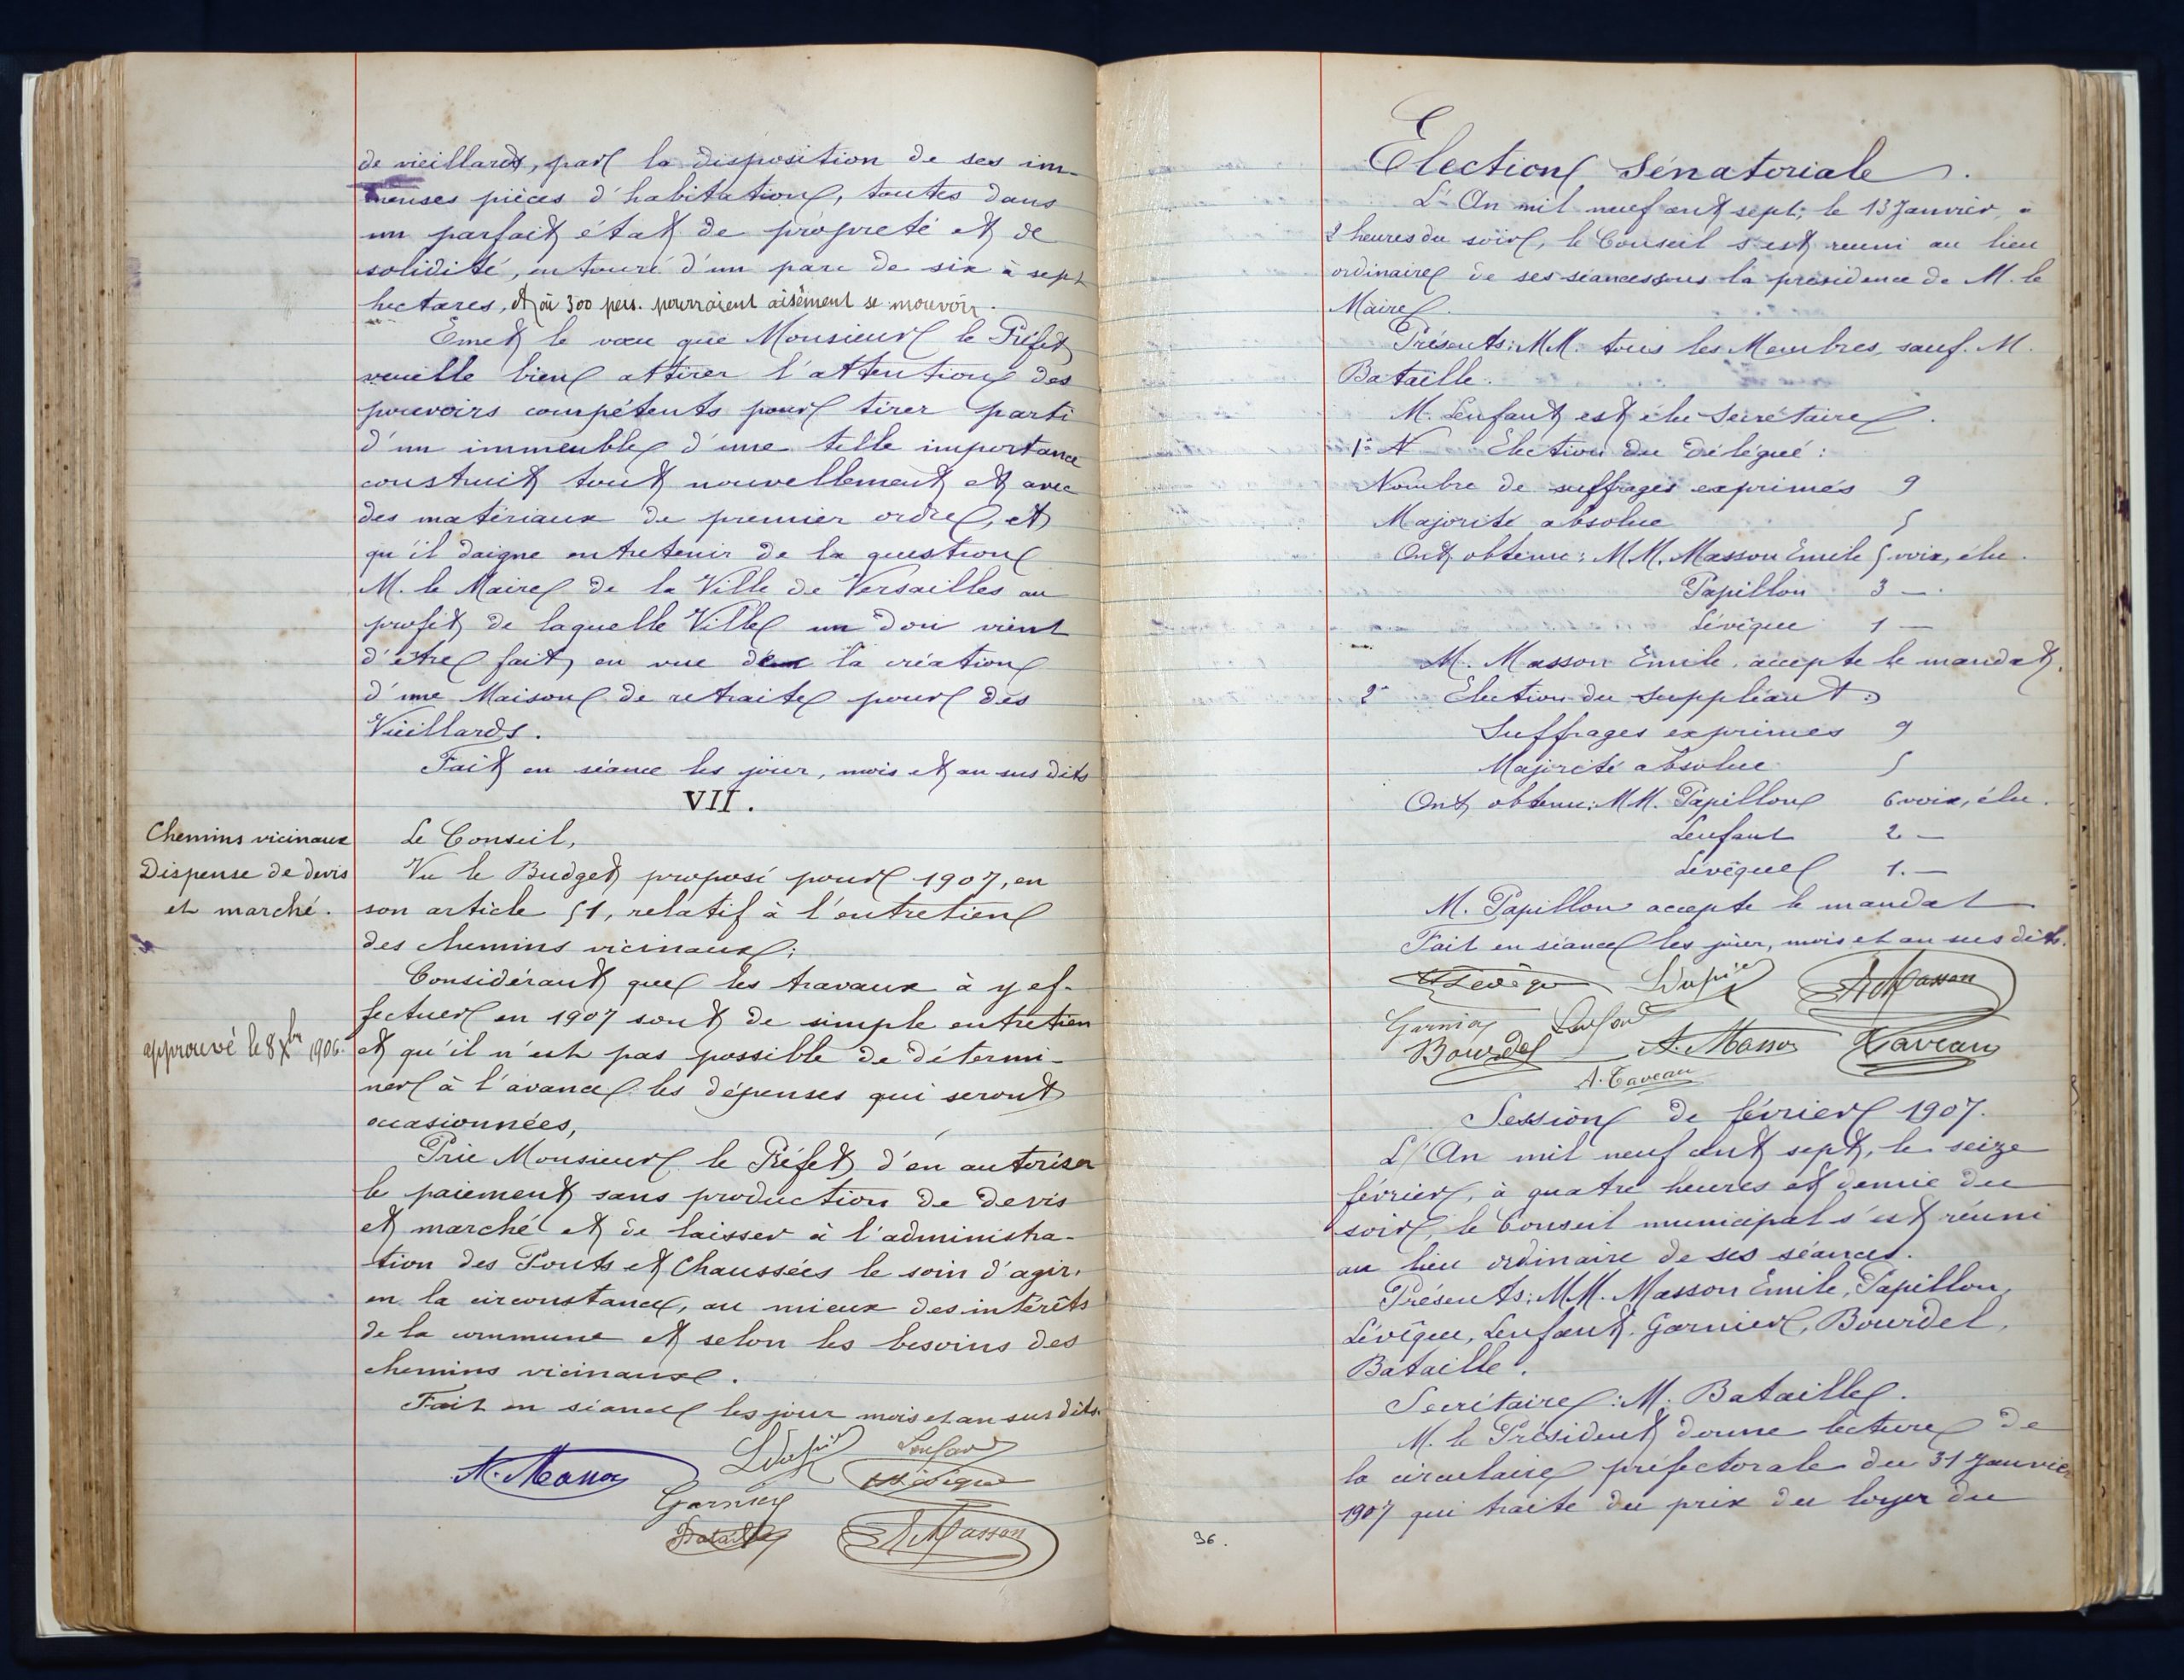 de vieillards, par la disposition de ses im-
menses pièces d'habitation, toutes dans
un parfait état de propreté et de
solidité, entouré d'un parc de six à sept
hectares, et où 300 pers. pourraient aisément se mouvoir.
Emet le vœu que Monsieur le Préfet
veuille bien attirer l'attention des
pouvoirs compétents pour tirer parti
d'un immeuble d'une telle importance
construit tout nouvellement et avec
des matériaux de premier ordre, et
qu'il daigne entretenir de la question
M. le Maire de la Ville de Versailles au
profit de laquelle Ville un don vient
d'être fait, en vue de la création
d'une Maison de retraite pour des
Vieillards.
Fait en séance les jour, mois et an sus dits
VII.
Chemins vicinaux
Dispense de devis
et marché.
Le Conseil,
Vu le Budget proposé pour 1907, en
son article 51, relatif à l'entretien
des chemins vicinaux;
Considérant que les travaux à y ef-
fectuer en 1907 sont de simple entretien
approuvé le 8 Xbre 1906.
et qu'il n'est pas possible de détermi-
ner à l'avance les dépenses qui seront
occasionnées,
Prie Monsieur le Préfet d'en autoriser
le paiement sans production de devis
et marché et de laisser à l'administra-
tion des Ponts et Chaussées le soin d'agir,
en la circonstance, au mieux des intérêts
de la commune et selon les besoins des
chemins vicinaux.
Fait en séance les jour mois et an sus dits.
A. Masson
Lenfant
Lévêque
Garnier
Bataille
A Masson
Election Sénatoriale.
L'An mil neuf cent sept, le 13 Janvier, à
2 heures du soir, le Conseil s'est réuni au lieu
ordinaire de ses séances sous la présidence de M. le
Maire.
Présents: MM. tous les Membres, sauf. M.
Bataille.
M. Lenfant est élu Secrétaire.
1° Election du Délégué:
Nombre de suffrages exprimés 9
Majorité absolue 5
Ont obtenu: MM. Masson Emile 5 voix, élu.
Papillon 3 —
Lévêque 1 —
M. Masson Emile accepte le mandat.
2° Election du Suppléant:
Suffrages exprimés 9
Majorité absolue 5
Ont obtenu: MM. Papillon 6 voix, élu.
Lenfant 2 —
Lévêque 1. —
M. Papillon accepte le mandat
Fait en séance les jour, mois et an sus dits.
Lévêque
A Masson
Garnier
Lenfant
Bourdel
A. Masson
Taveau
A. Taveau
Session de février 1907.
L'An mil neuf cent sept, le seize
février, à quatre heures et demie du
soir, le Conseil municipal s'est réuni
au lieu ordinaire de ses séances.
Présents: MM. Masson Emile, Papillon,
Lévêque, Lenfant, Garnier, Bourdel,
Bataille.
Secrétaire: M. Bataille.
M. le Président donne lecture de
la circulaire préfectorale du 31 Janvier
1907 qui traite du prix du loyer du
36.